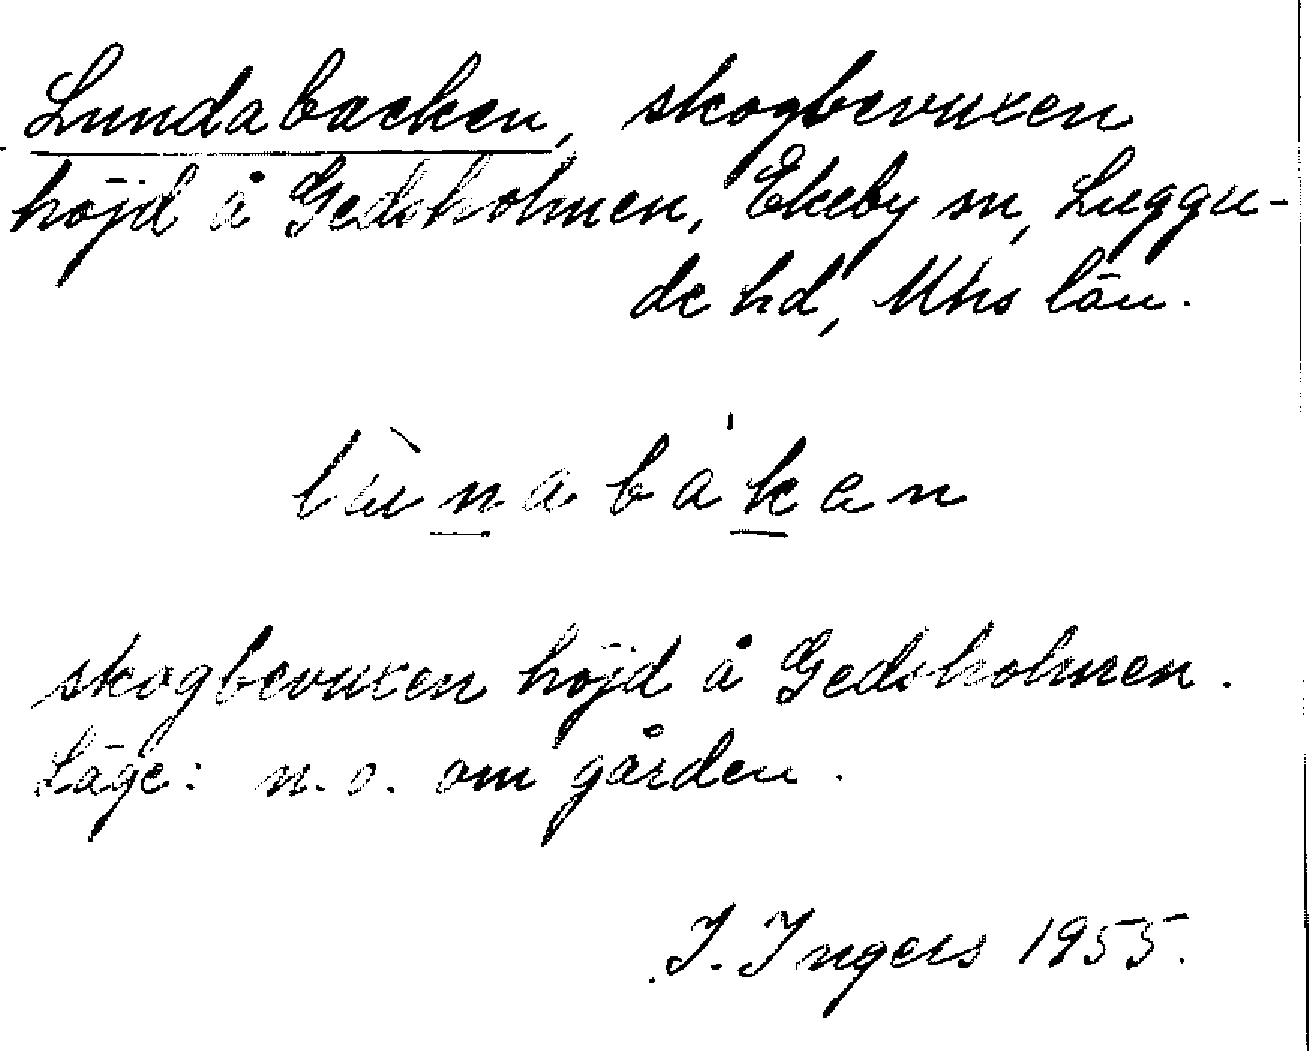 Lundabacken, skogbevuxen
höjd å Gedsholmen, Ekeby sn, Luggu-
de hd, Mhs län.
skogbevuxen höjd å Gedsholmen.
Läge: n.o. om gården.
I. Ingers 1955.